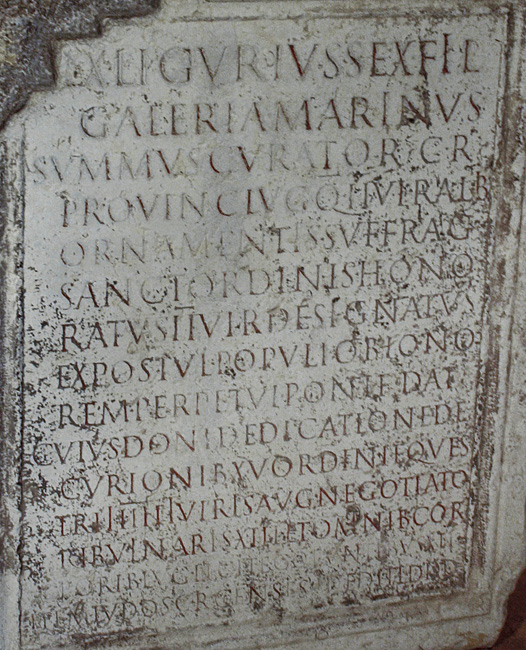 EX LIGVRIVS SEX FIL
GALERIA MARINVS
SVMMVS CVRATOR C R
PROVINC LVG Q II VIRALIB
ORNAMENTIS SVFFRAG
SANCT ORDINIS HONO
RATVS II VIR DESIGNATVS
EX POSTVL POPVLI OB HONO
REM PERPETVI PONTIF DAT
CVIVS DONI DEDICATIONE DE
CVRIONIB X V ORDINI EQVES
TRI IIIIII VIRIS AVG NEGOTIATO
RIB VINARIS X III ET OMNIB COR
PORIB LVG
ITEM LVDOS CIRCENSES DEDIT L D D D